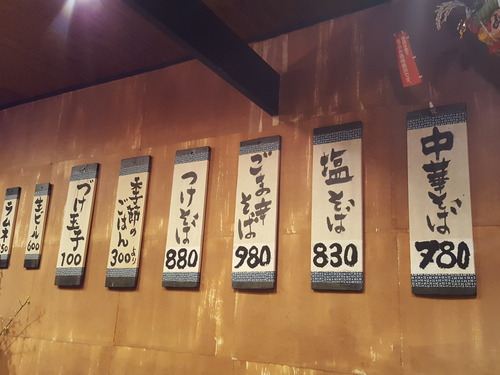 中華そば
780
塩そば
830
ごま辛そば
980
つけそば
880
季節の
ごはん
300より
づけ玉子
100
生ビール
600